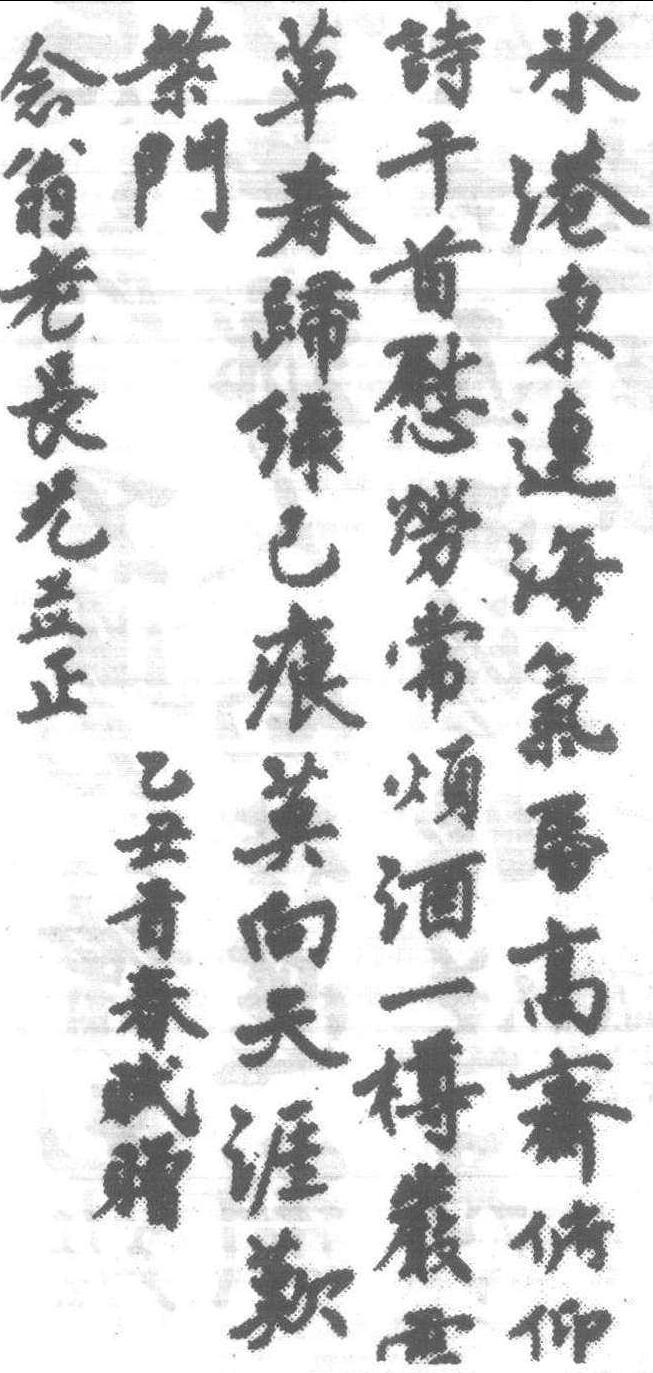 氷港東連海氣昏高齋俯仰
詩千首慰勞常煩酒一樽嚴雪
草春歸綠已痕莫向天涯歎
柴門
乙丑首春賦贈
念翁老長兄並正